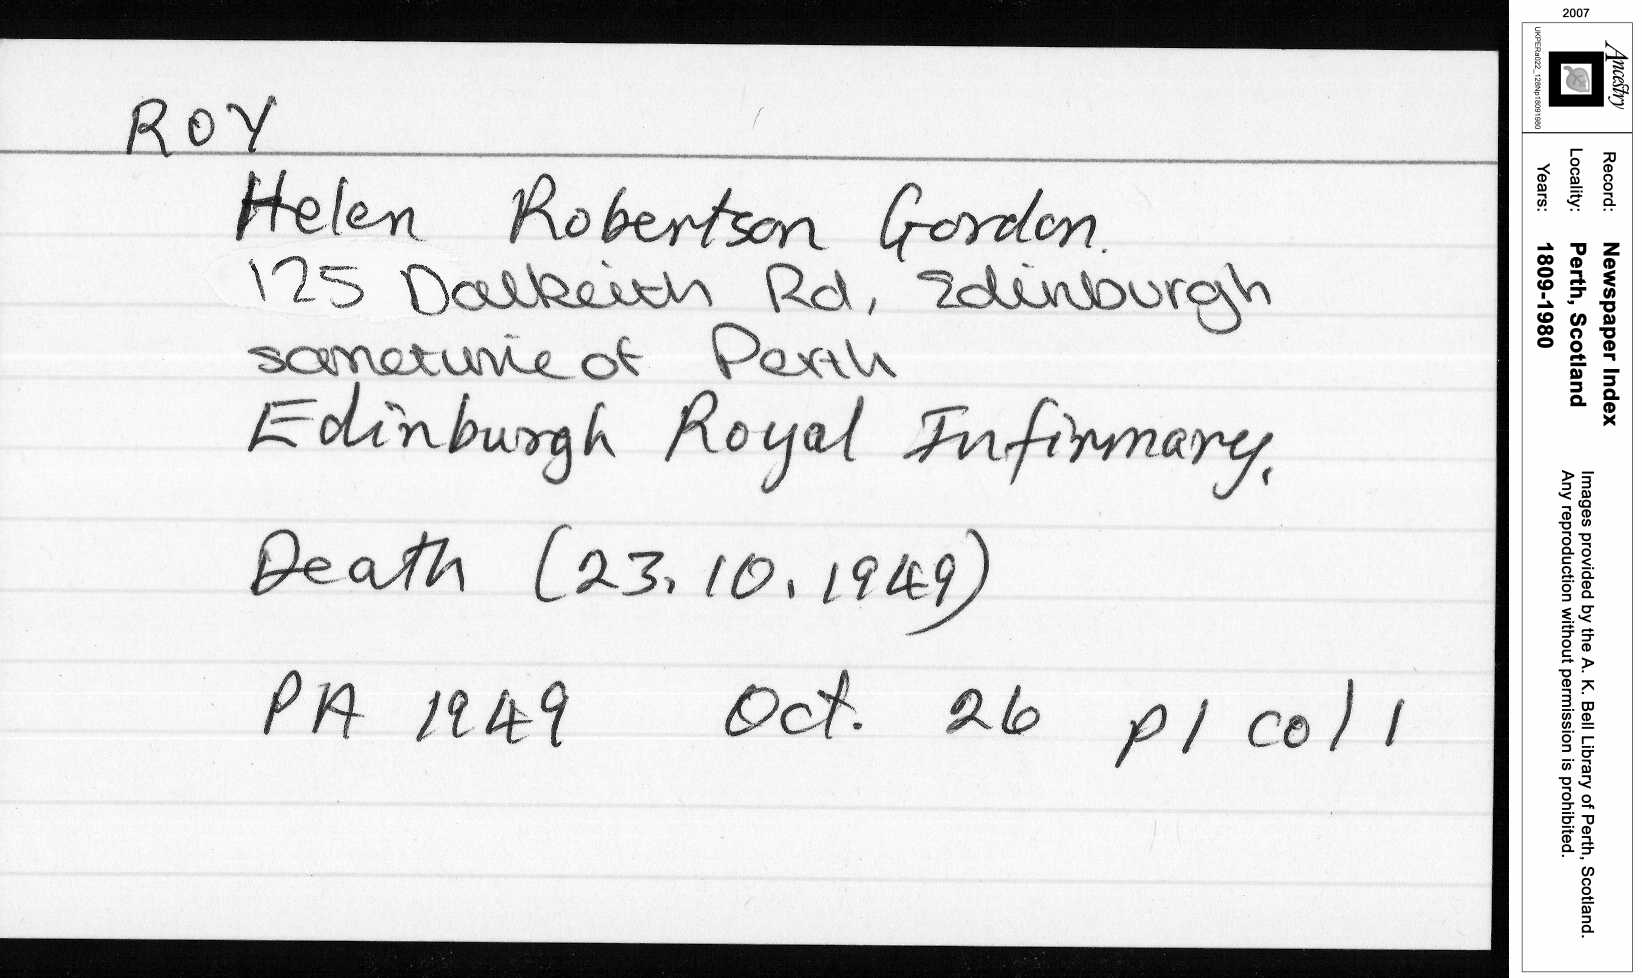 ROY
Helen Robertson Gordon.
125 Dalkeith Rd, Edinburgh
sometime of Perth
Edinburgh Royal Infirmary.
Death (23.10.1949)
PA 1949 Oct. 26 p1 col 1
2007
Ancestry
UKPERal022_128Np18091980
Record: Newspaper Index
Locality: Perth, Scotland
Years: 1809-1980
Images provided by the A. K. Bell Library of Perth, Scotland.
Any reproduction without permission is prohibited.